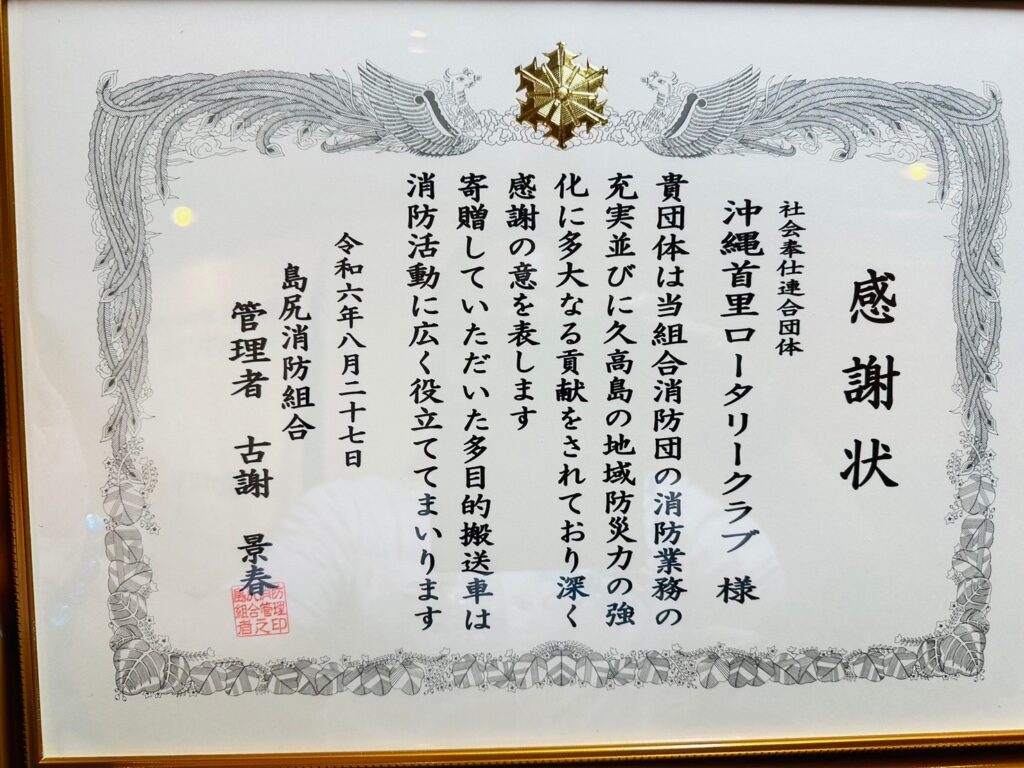 感謝状
社会奉仕連合団体
沖縄首里ロータリークラブ 様
貴団体は当組合消防団の消防業務の
充実並びに久高島の地域防災力の強
化に多大なる貢献をされており深く
感謝の意を表します
寄贈していただいた多目的搬送車は
消防活動に広く役立ててまいります
令和六年八月二十七日
島尻消防組合
管理者 古謝 景春